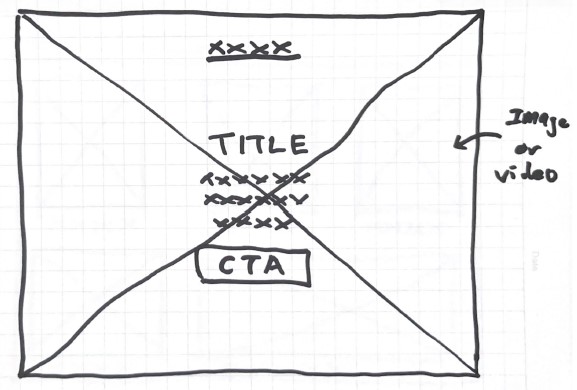 xxxx
TITLE
xxxxxx
xxxxxx
xxxx
CTA
Image
or
video